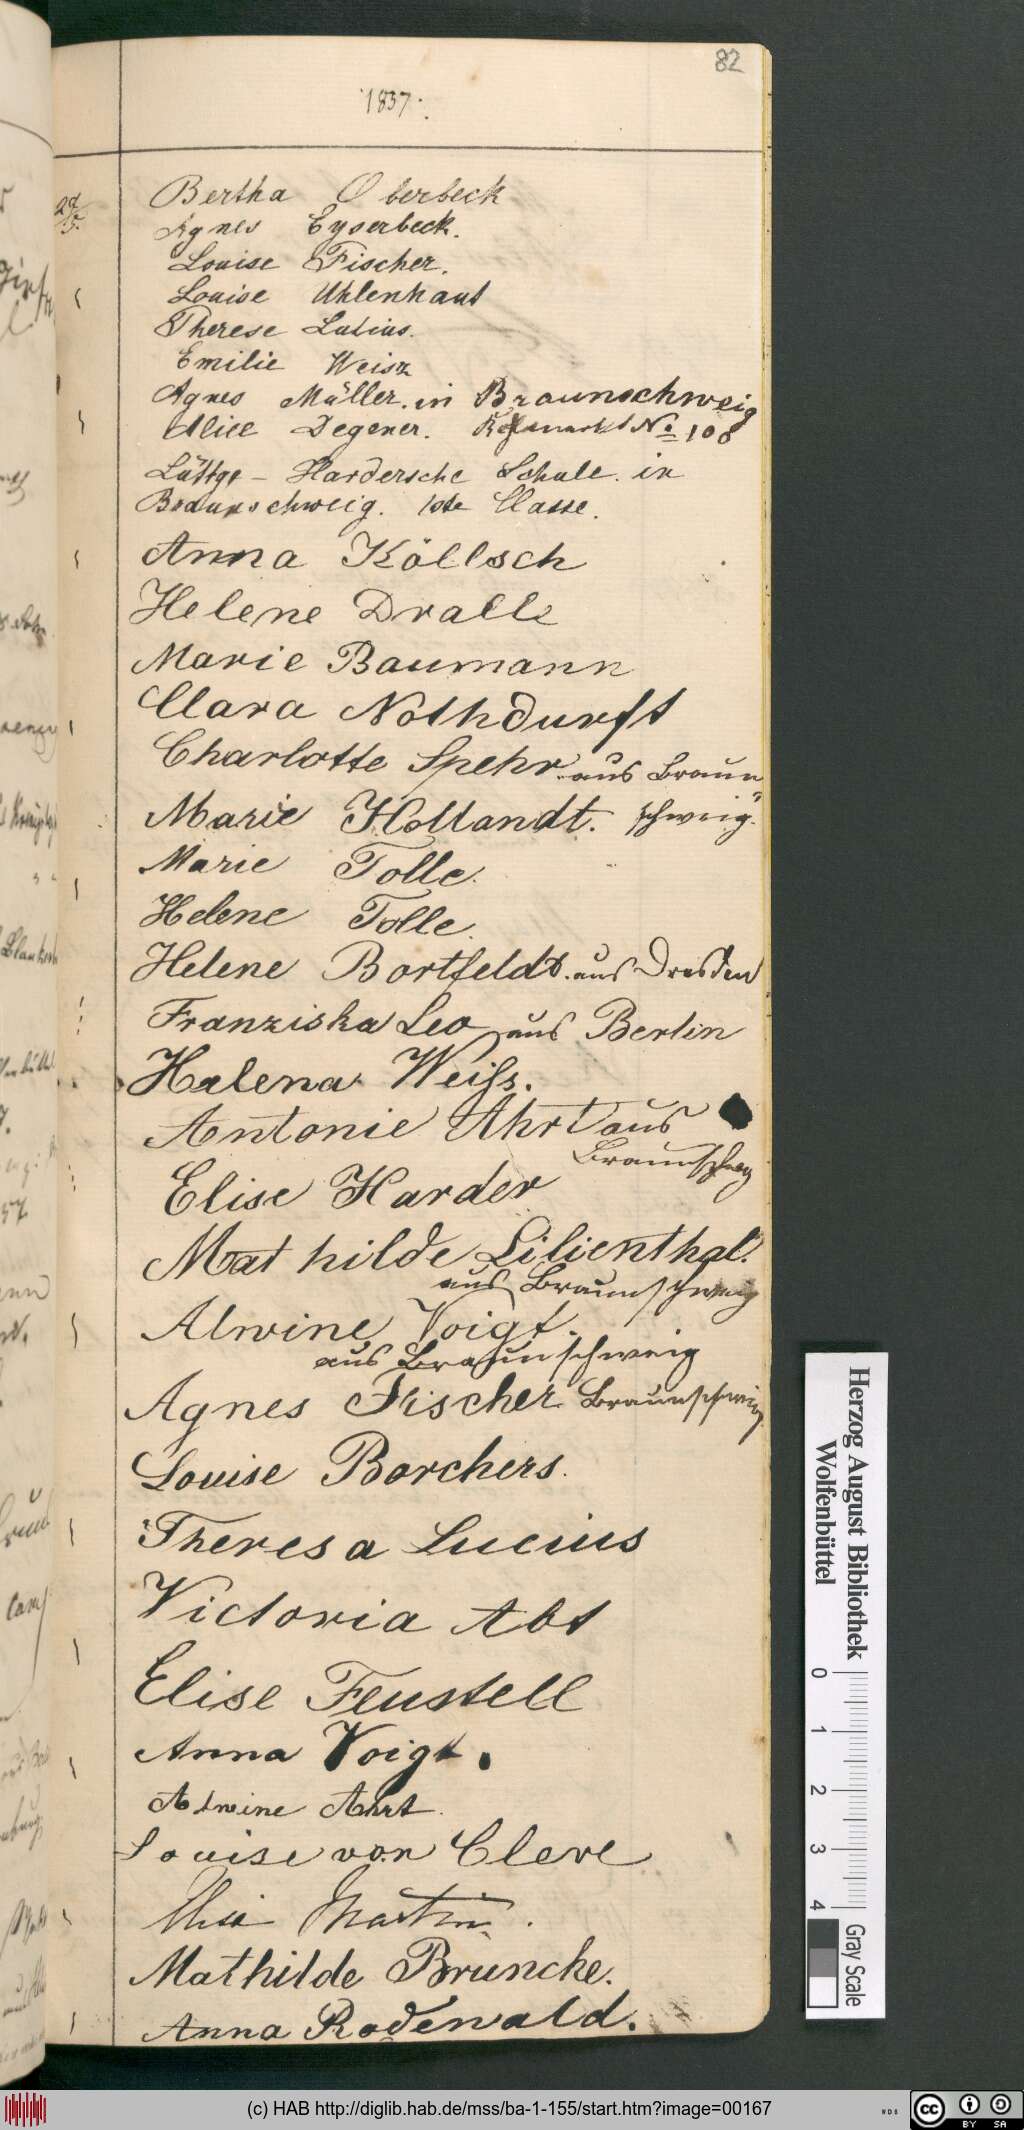 82
1837.
27/5.
Bertha Oberbeck
Agnes Eyserbeck.
Louise Fischer.
Louise Uhlenhaut
Therese Lucius.
Emilie Weisz
Agnes Müller. in Braunschweig
Alice Degener. No 108
Lüttge - Hardersche Schule. in
Braunschweig. 1ste Classe.
Anna Köllsch
Helene Dralle
Marie Baumann
Clara Nothdurft
Charlotte Spehr aus Braun
Marie Hollandt. schweig.
Marie Tolle.
Helene Tolle.
Helene Bortfeldt. aus Dresden
Franziska Leo aus Berlin
Helena Weiss.
Antonie Ahrt aus
Braunschweig
Elise Harder
Mathilde Lilienthal.
aus Braunschweig
Alwine Voigt.
aus Braunschweig
Agnes Fischer Braunschweig
Louise Borchers.
Theresa Lucius
Victoria Abt
Elise Feustell
Anna Voigt.
Alwine Ahrt.
Louise von Cleve
Elise Martin.
Mathilde Bruncke.
Anna Rodenwald.
Herzog August Bibliothek
Wolfenbüttel
0 1 2 3 4
Gray Scale
(c) HAB http://diglib.hab.de/mss/ba-1-155/start.htm?image=00167
WDB
cc BY SA